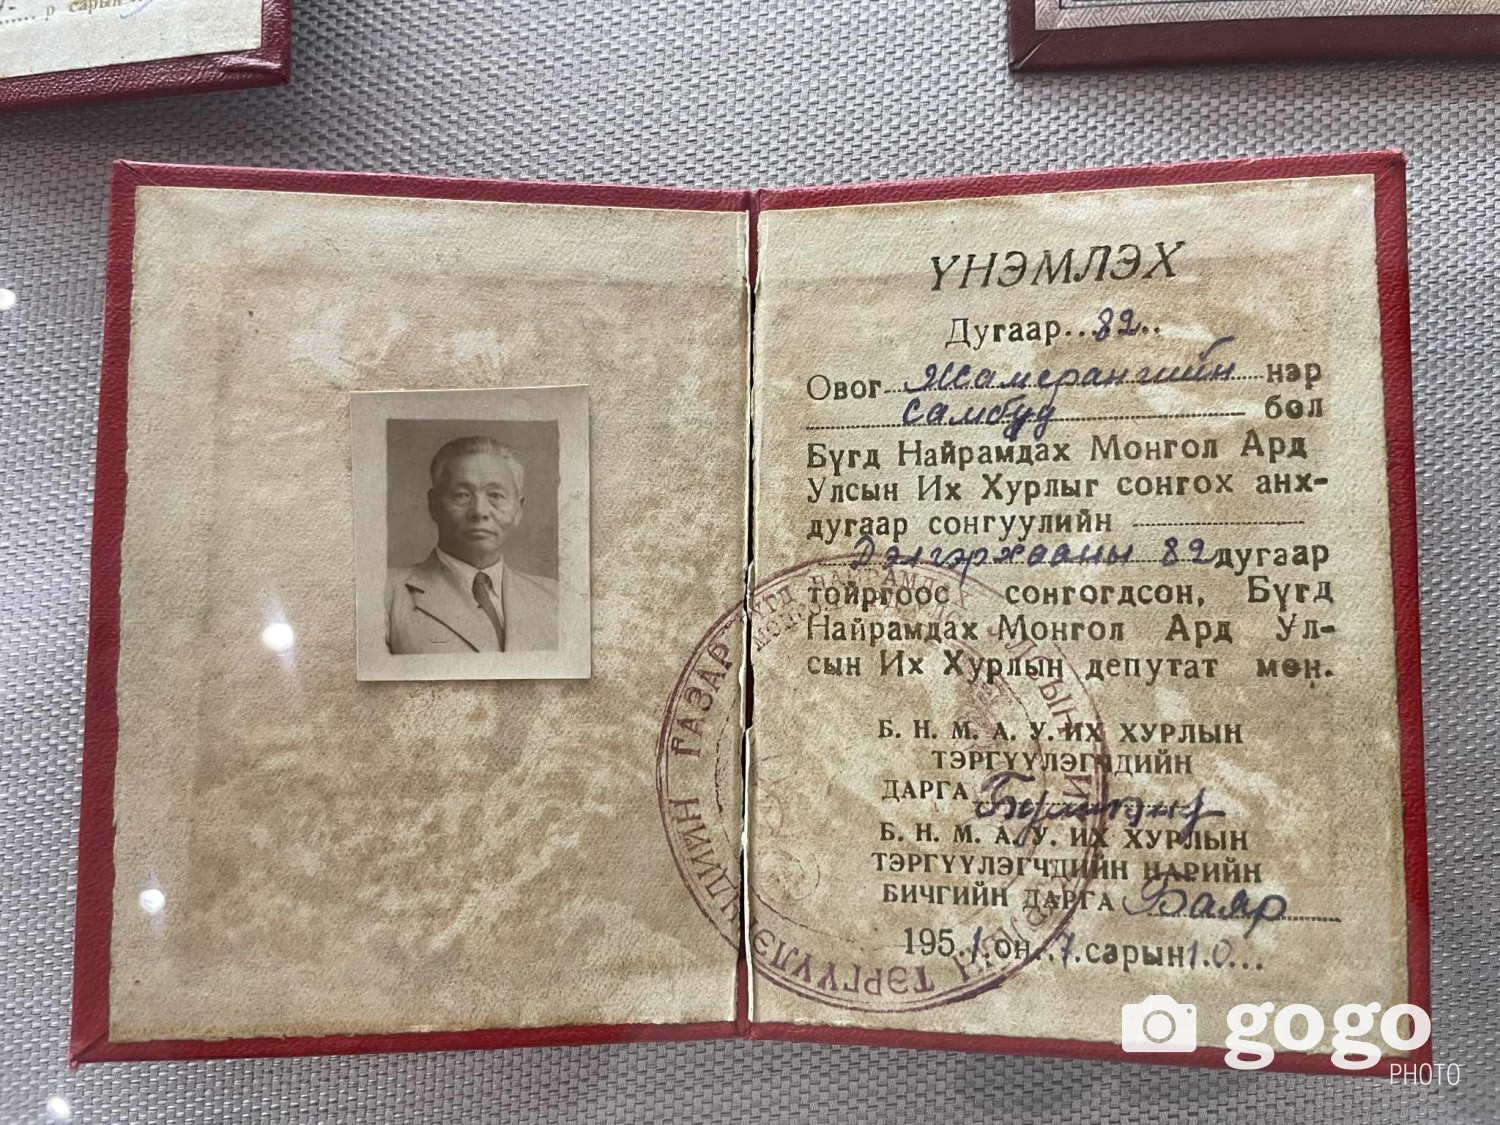 р сарын
ҮНЭМЛЭХ
Дугаар..82..
Овог Жамсрангийн нэр
Самбуу бөл
Бүгд Найрамдах Монгол Ард
Улсын Их Хурлыг сонгох анх-
дугаар сонгуулийн
Дэлгэрхааны 82 дугаар
тойргоос сонгогдсон, Бүгд
Найрамдах Монгол Ард Ул-
сын Их Хурлын депутат мөн.
Б. Н. М. А. У. ИХ ХУРЛЫН
ТЭРГҮҮЛЭГЧДИЙН
ДАРГА
Б. Н. М. А. У. ИХ ХУРЛЫН
ТЭРГҮҮЛЭГЧДИЙН НАРИЙН
БИЧГИЙН ДАРГА Баяр
1951 он 7 сарын 10
gogo
PHOTO